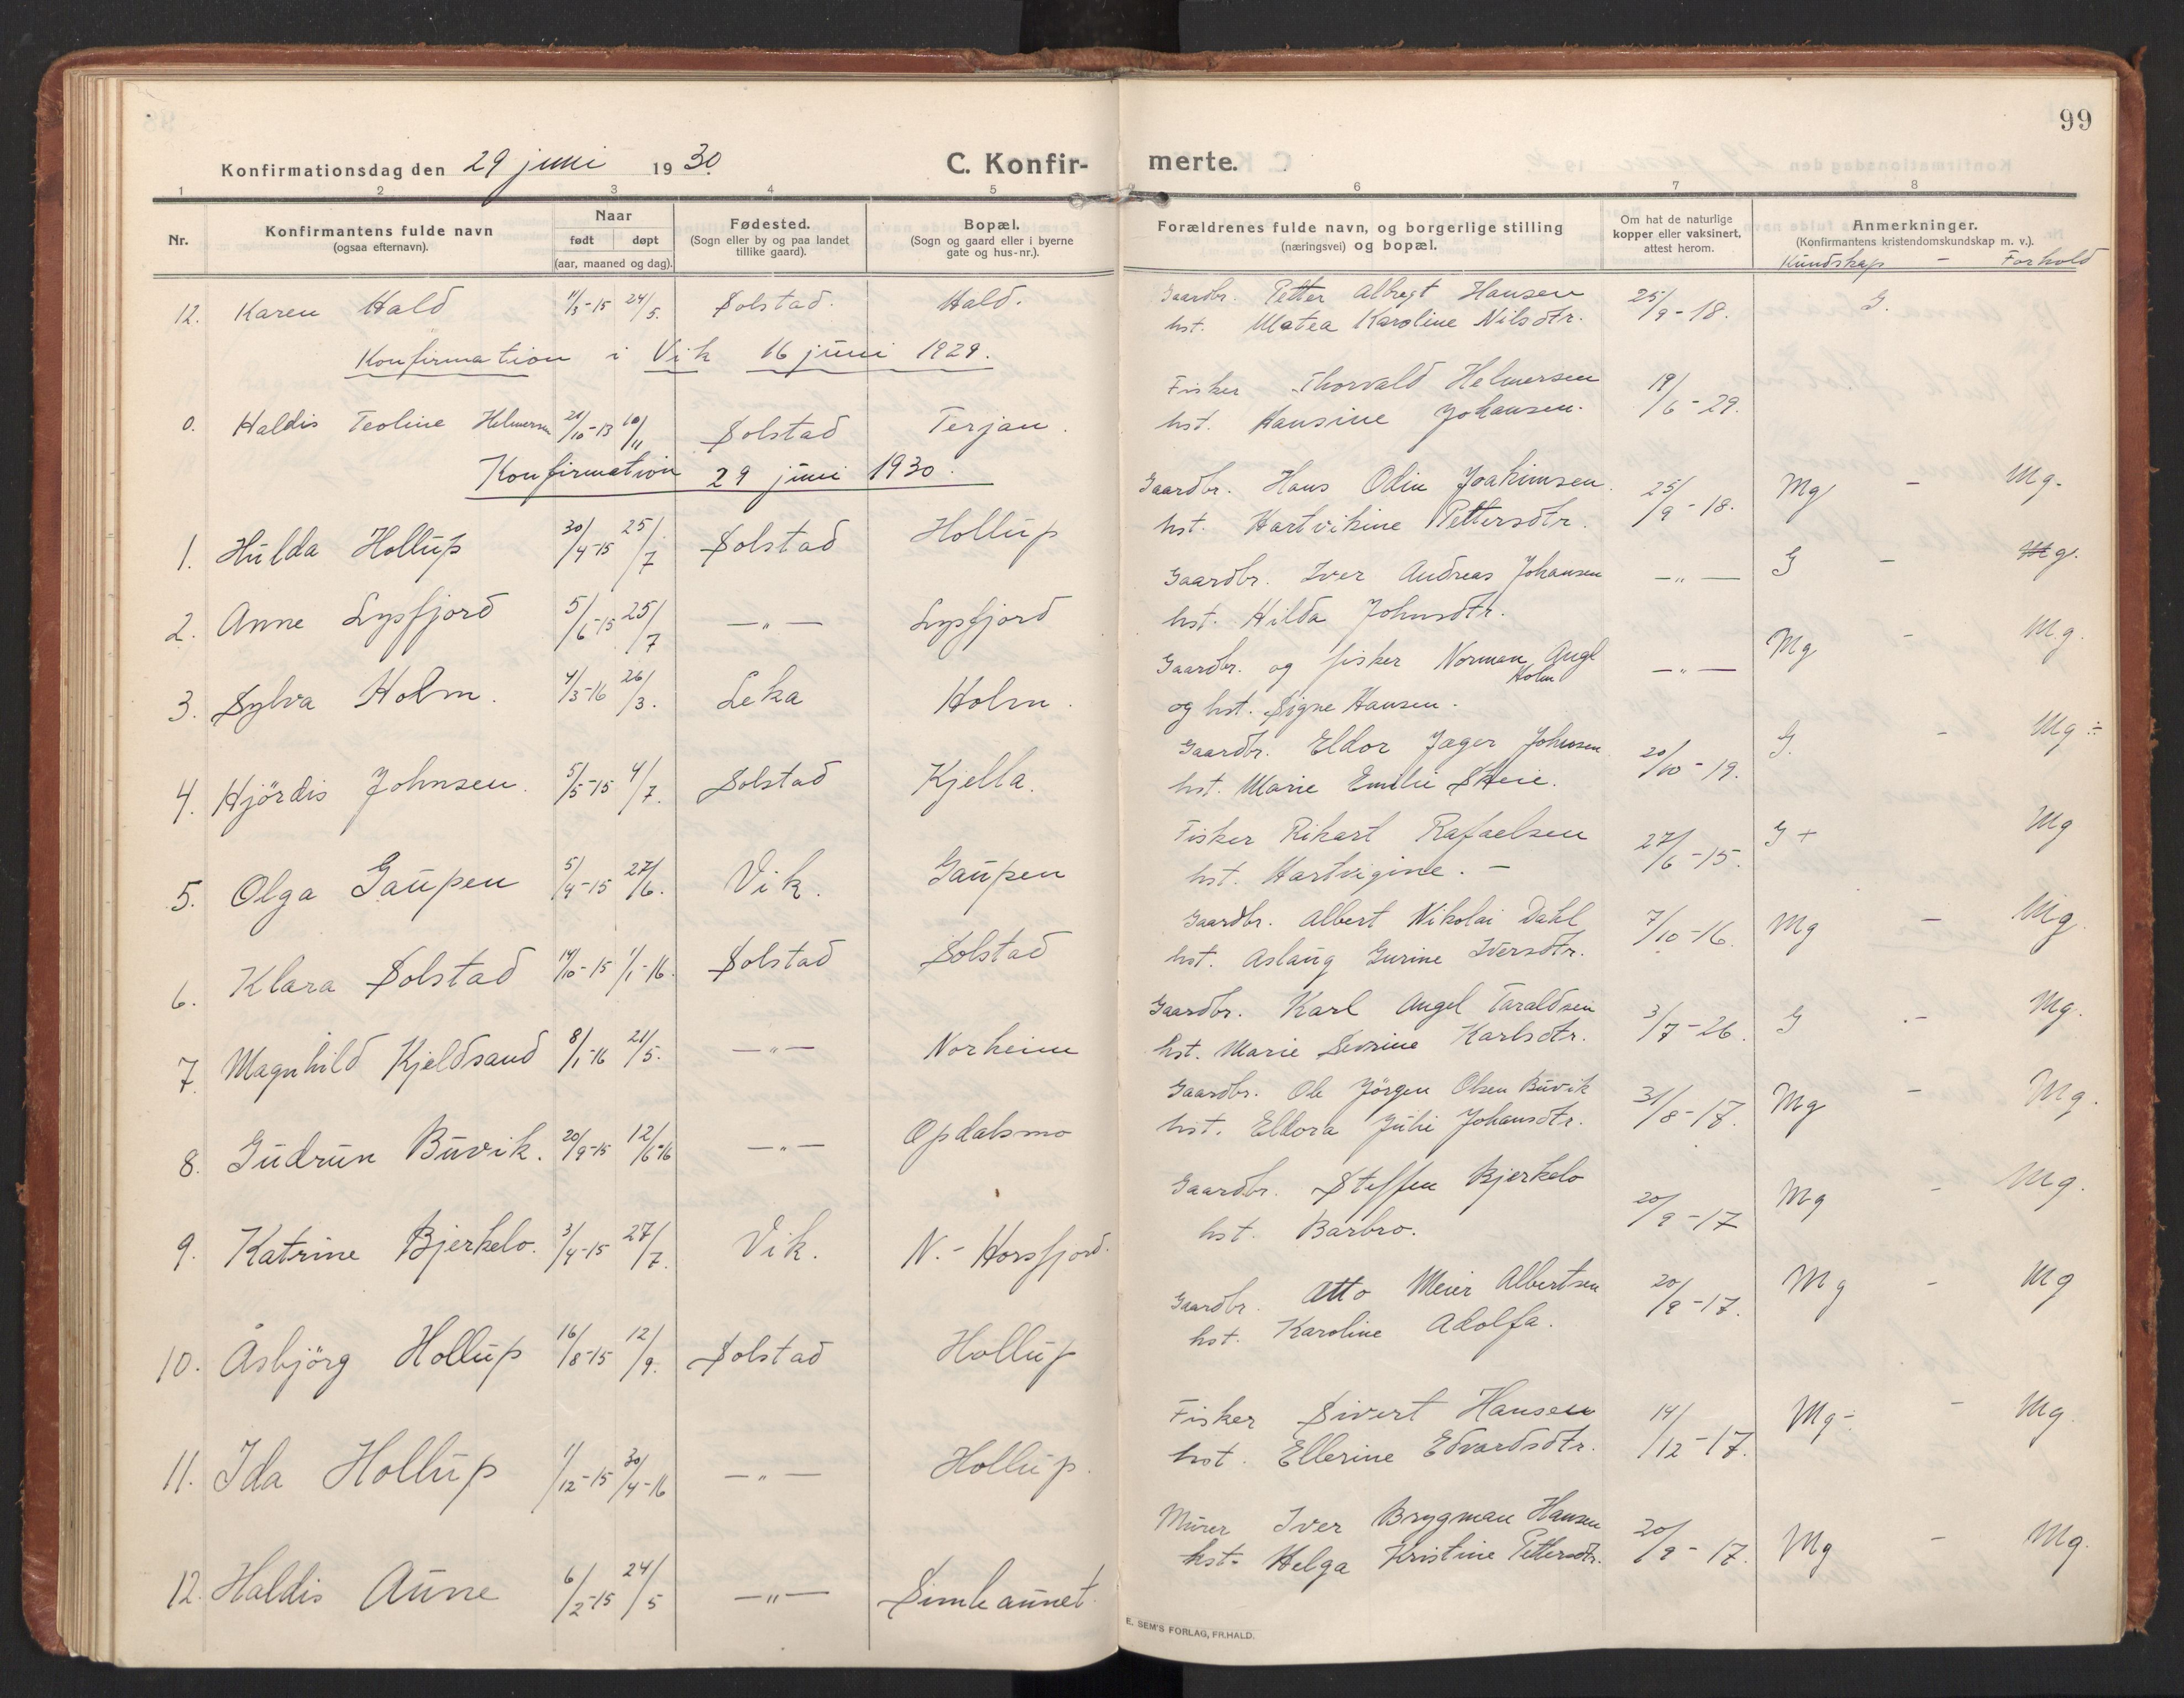 99
Konfirmationsdag den 29 juni 1930. C. Konfir-merte.
1 2 3 4 5 6 7 8
Nr. Konfirmantens fulde navn (ogsaa efternavn). Naar født døpt (aar, maaned og dag). Fødested. (Sogn eller by og paa landet tillike gaard). Bopæl. (Sogn og gaard eller i byerne gate og hus-nr.). Forældrenes fulde navn, og borgerlige stilling (næringsvei) og bopæl. Om hat de naturlige kopper eller vaksinert, attest herom. Anmerkninger. (Konfirmantens kristendomskundskap m. v.).
Kundskap - Forhold
12. Karen Hald 11/3-15 24/5. Solstad. Hald. Gaardbr. Petter Albregt Hansen 25/9-18. G.
hst. Matea Karoline Nilsdtr.
Konfirmation i Vik 16 juni 1929.
0. Haldis Teoline Helmersen 21/10-13 10/11 Solstad Terjan. Fisker Thorvald Helmersen 19/6-29.
hst. Hansine Johansen.
Konfirmation 29 juni 1930.
1. Hulda Hollup 30/4-15 25/7 Solstad Hollup Gaardbr. Hans Odin Joakimsen 25/9-18. Mg - Mg.
hst. Hartvikine Pettersdtr.
2. Anne Lysfjord 5/6-15 25/7 -"- Lysfjord Gaardbr. Iver Andreas Johansen -"- G - Mg.
hst. Hilda Johnsdtr.
3. Sylva Holm. 4/3-16 26/3. Leka Holm. Gaardbr. og fisker Norman Angl Holm -"- Mg - Mg.
og hst. Signe Hansen.
4. Hjördis Johnsen. 5/5-15 4/7. Solstad Kjella. Gaardbr. Eldor Jæger Johnsen 20/10-19. G. - Mg ÷
hst. Marie Emelie Skeie.
5. Olga Gaupen 5/4-15 27/6. Vik. Gaupen Fisker Rikart Rafaelsen 27/6-15. G + Mg
hst. Hartvigine. -
6. Klara Solstad 14/10-15 1/1-16. Solstad Solstad Gaardbr. Albert Nikolai Dahl 7/10-16. Mg - Mg.
hst. Aslaug Gurine Iversdtr.
7. Magnhild Kjeldsand 8/1-16 21/5. -"- Norheim Gaardbr. Karl Angel Taraldsen 3/7-26. G - Mg.
hst. Marie Sevrine Karlsdtr.
8. Gudrun Buvik. 20/9-15 12/6-16 -"- Opdalsmo Gaardbr. Ole Jörgen Olsen Buvik 31/8-17. Mg - Mg.
hst. Eldora Julie Johansdtr.
9. Katrine Bjerkelo. 3/4-15 27/7. Vik. N.-Horsfjord. Gaardbr. Steffen Bjerkelo 20/9-17 Mg - Mg.
hst. Barbro.
10. Åsbjörg Hollup 16/8-15 12/9. Solstad Hollup Gaardbr. Otto Meier Albertsen 20/9-17. Mg - Mg
hst. Karoline Adolfa.
11. Ida Hollup 11/12-15 30/4-16 -"- Hollup. Fisker Sivert Hansen 14/12-17. Mg÷ - Mg.
hst. Ellerine Edvardsdtr.
12. Haldis Aune 6/2-15 24/5 -"- Simleaunet. Murer Iver Brygman Hansen 20/9-17. Mg - Mg.
hst. Helga Kristine Pettersdtr.
E. SEM'S FORLAG, FR.HALD.